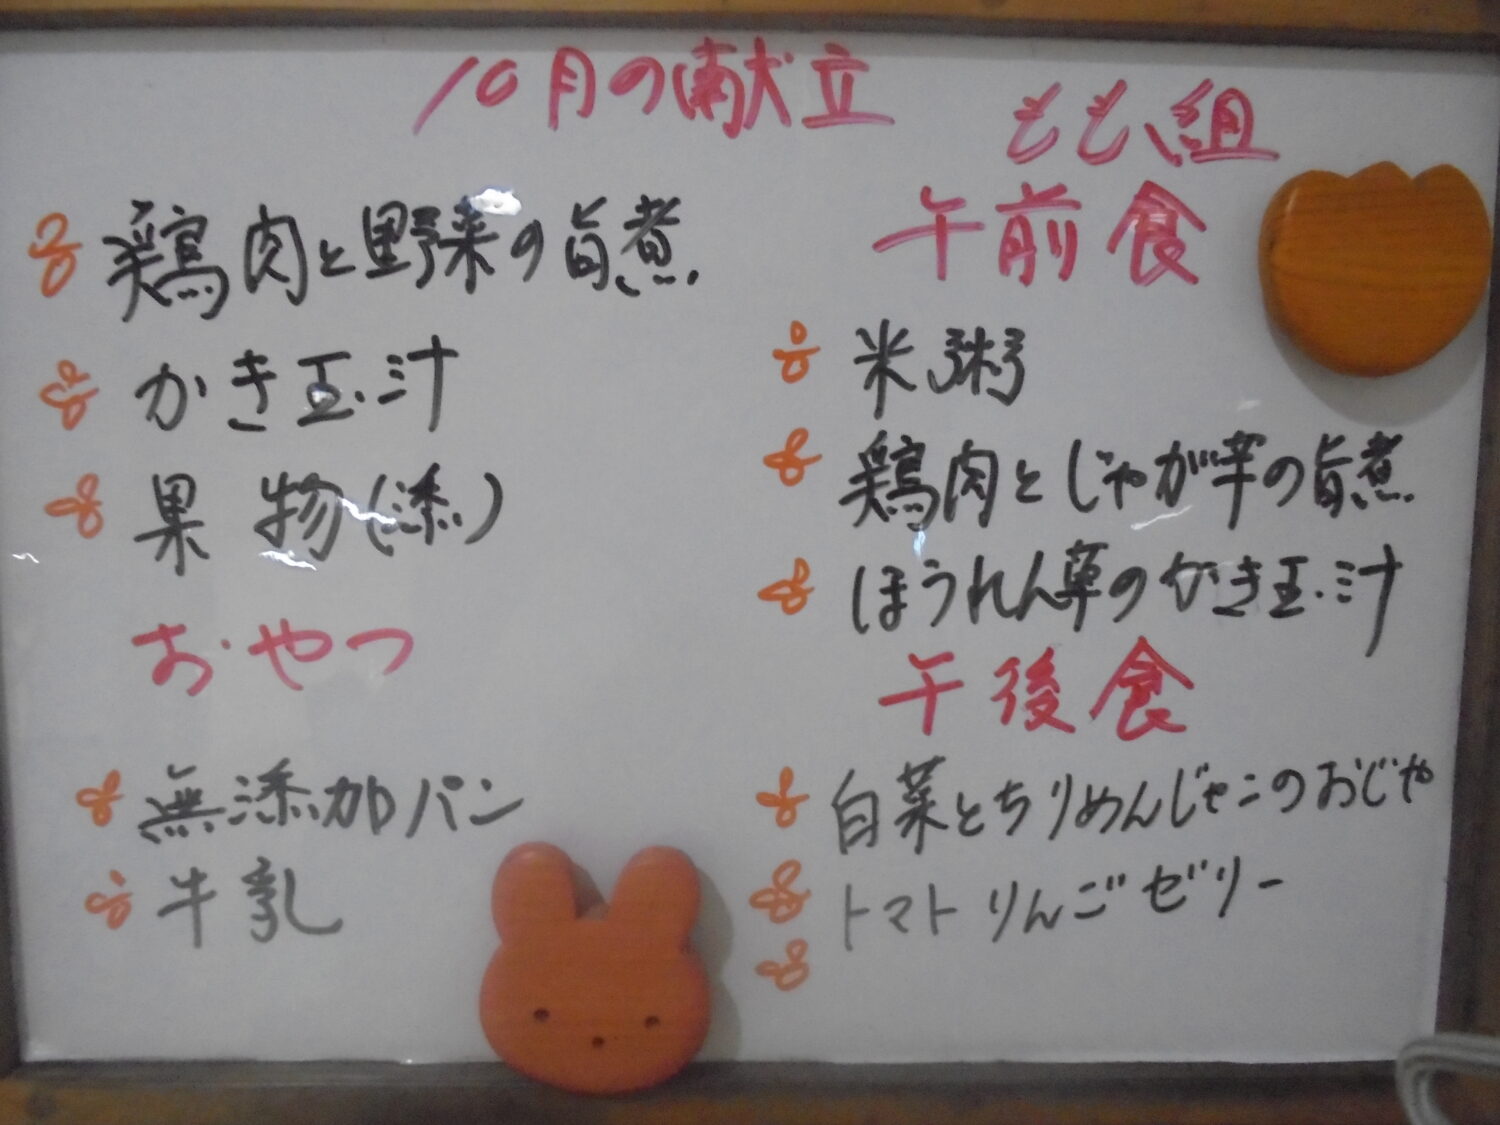 10月の献立
鶏肉と野菜の旨煮
かき玉汁
果物(柿)
おやつ
無添加パン
牛乳
もも組
午前食
米粥
鶏肉とじゃが芋の旨煮
ほうれん草のかき玉汁
午後食
白菜とちりめんじゃこのおじや
トマトりんごゼリー